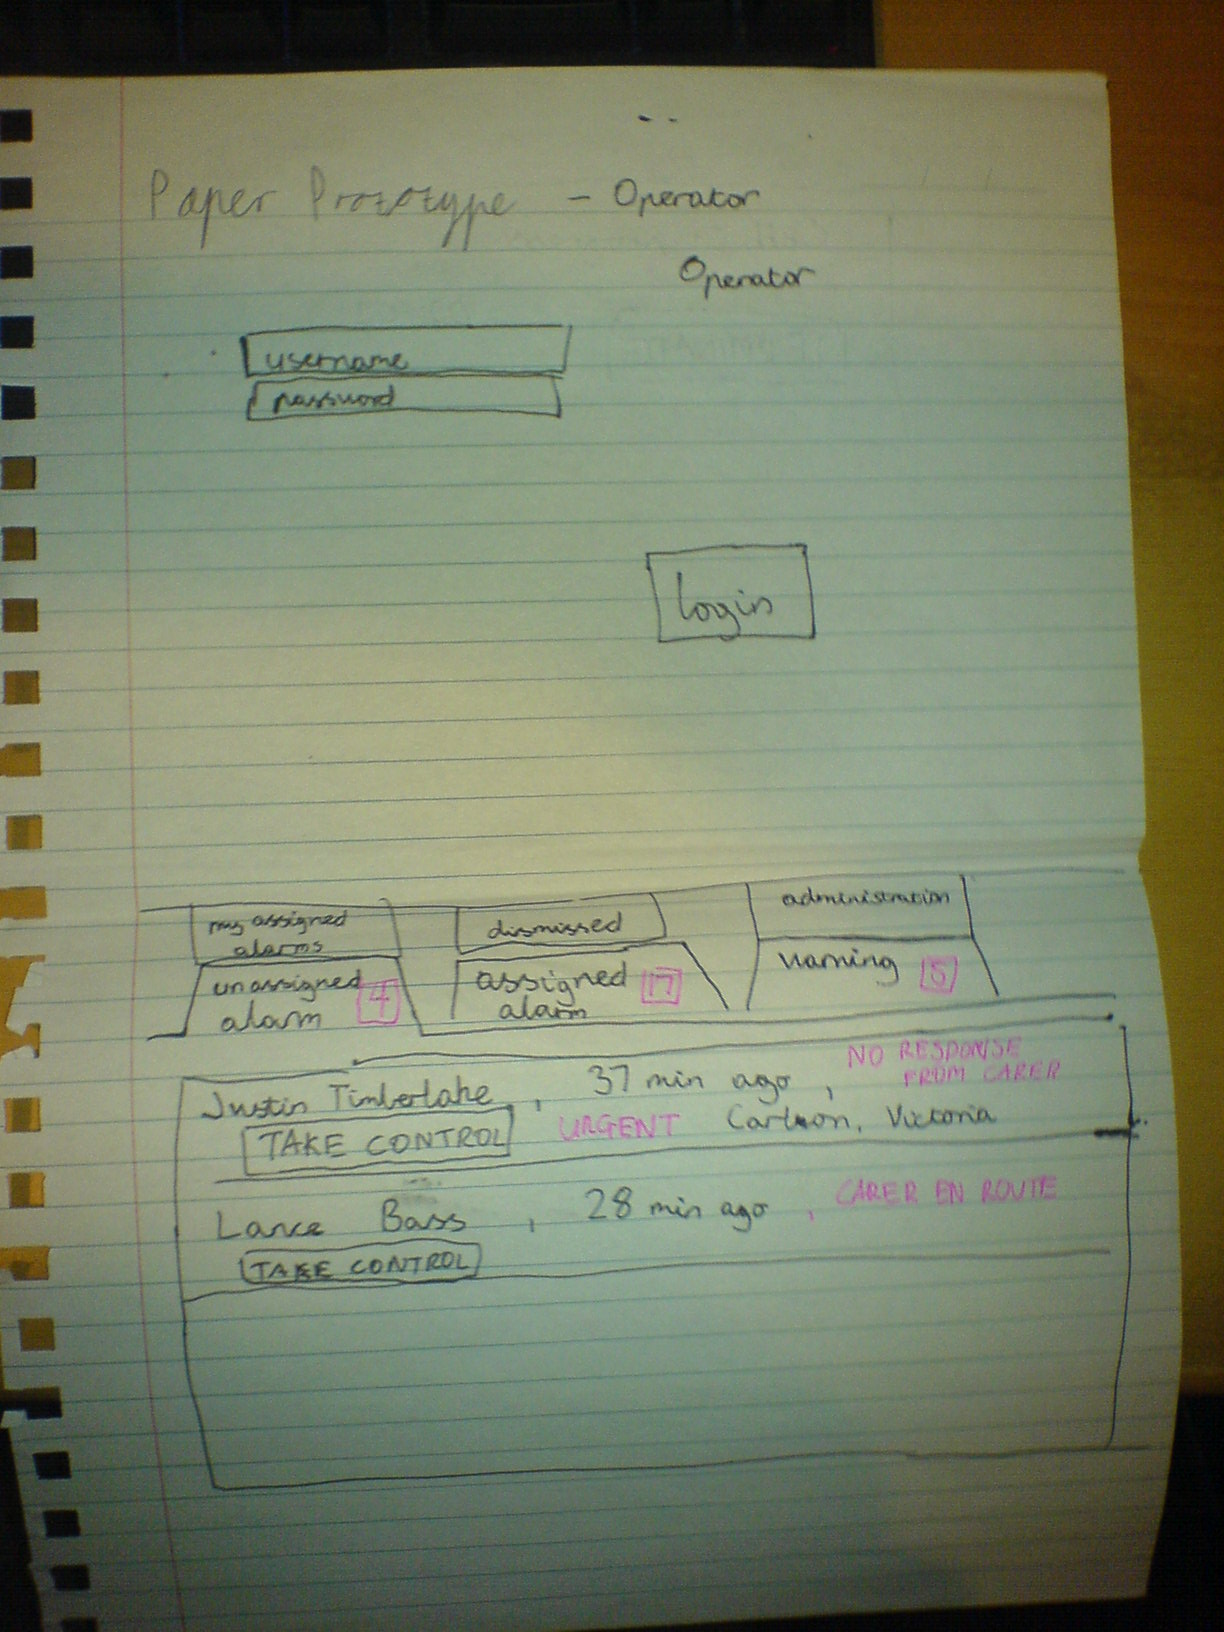 Paper Prototype - Operator
Operator
username
password
login
my assigned alarms
dismissed
administration
unassigned alarm 4
assigned alarm 17
warning 5
Justin Timberlake, 37 min ago, NO RESPONSE FROM CARER
TAKE CONTROL URGENT Carlton, Victoria
Lance Bass, 28 min ago, CARER EN ROUTE
TAKE CONTROL